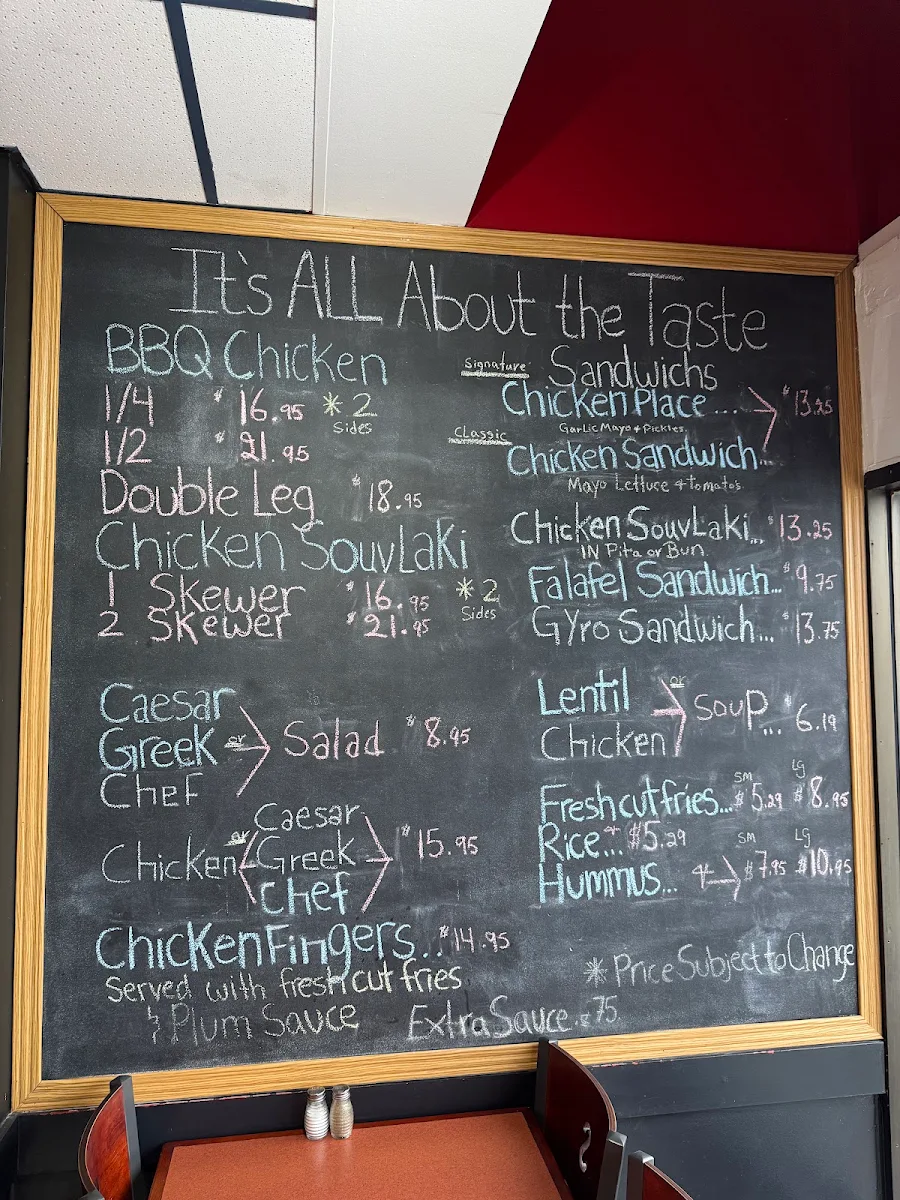 It's ALL About the Taste
BBQ Chicken
1/4 $16.95 *2
Sides
1/2 $21.95
Double Leg $18.95
Chicken SouvLaki
1 Skewer $16.95 *2
Sides
2 Skewer $21.95
Caesar
Greek or Salad $8.95
Chef
Caesar
Chicken or Greek $15.95
Chef
Chicken Fingers... $14.95
Served with fresh cut fries
& Plum Sauce Extra Sauce $.75
Signature Sandwichs
Chicken Place... $13.25
Garlic Mayo + Pickles
Classic
Chicken Sandwich...
Mayo Lettuce + tomato's
Chicken SouvLaki... $13.25
IN Pita or Bun
Falafel Sandwich... $9.75
Gyro Sandwich... $13.75
Lentil or
Soup... $6.19
Chicken
SM Lg
Fresh cut fries... $5.29 $8.95
Rice... $5.29
SM LG
Hummus... $7.95 $10.95
*Price Subject to Change